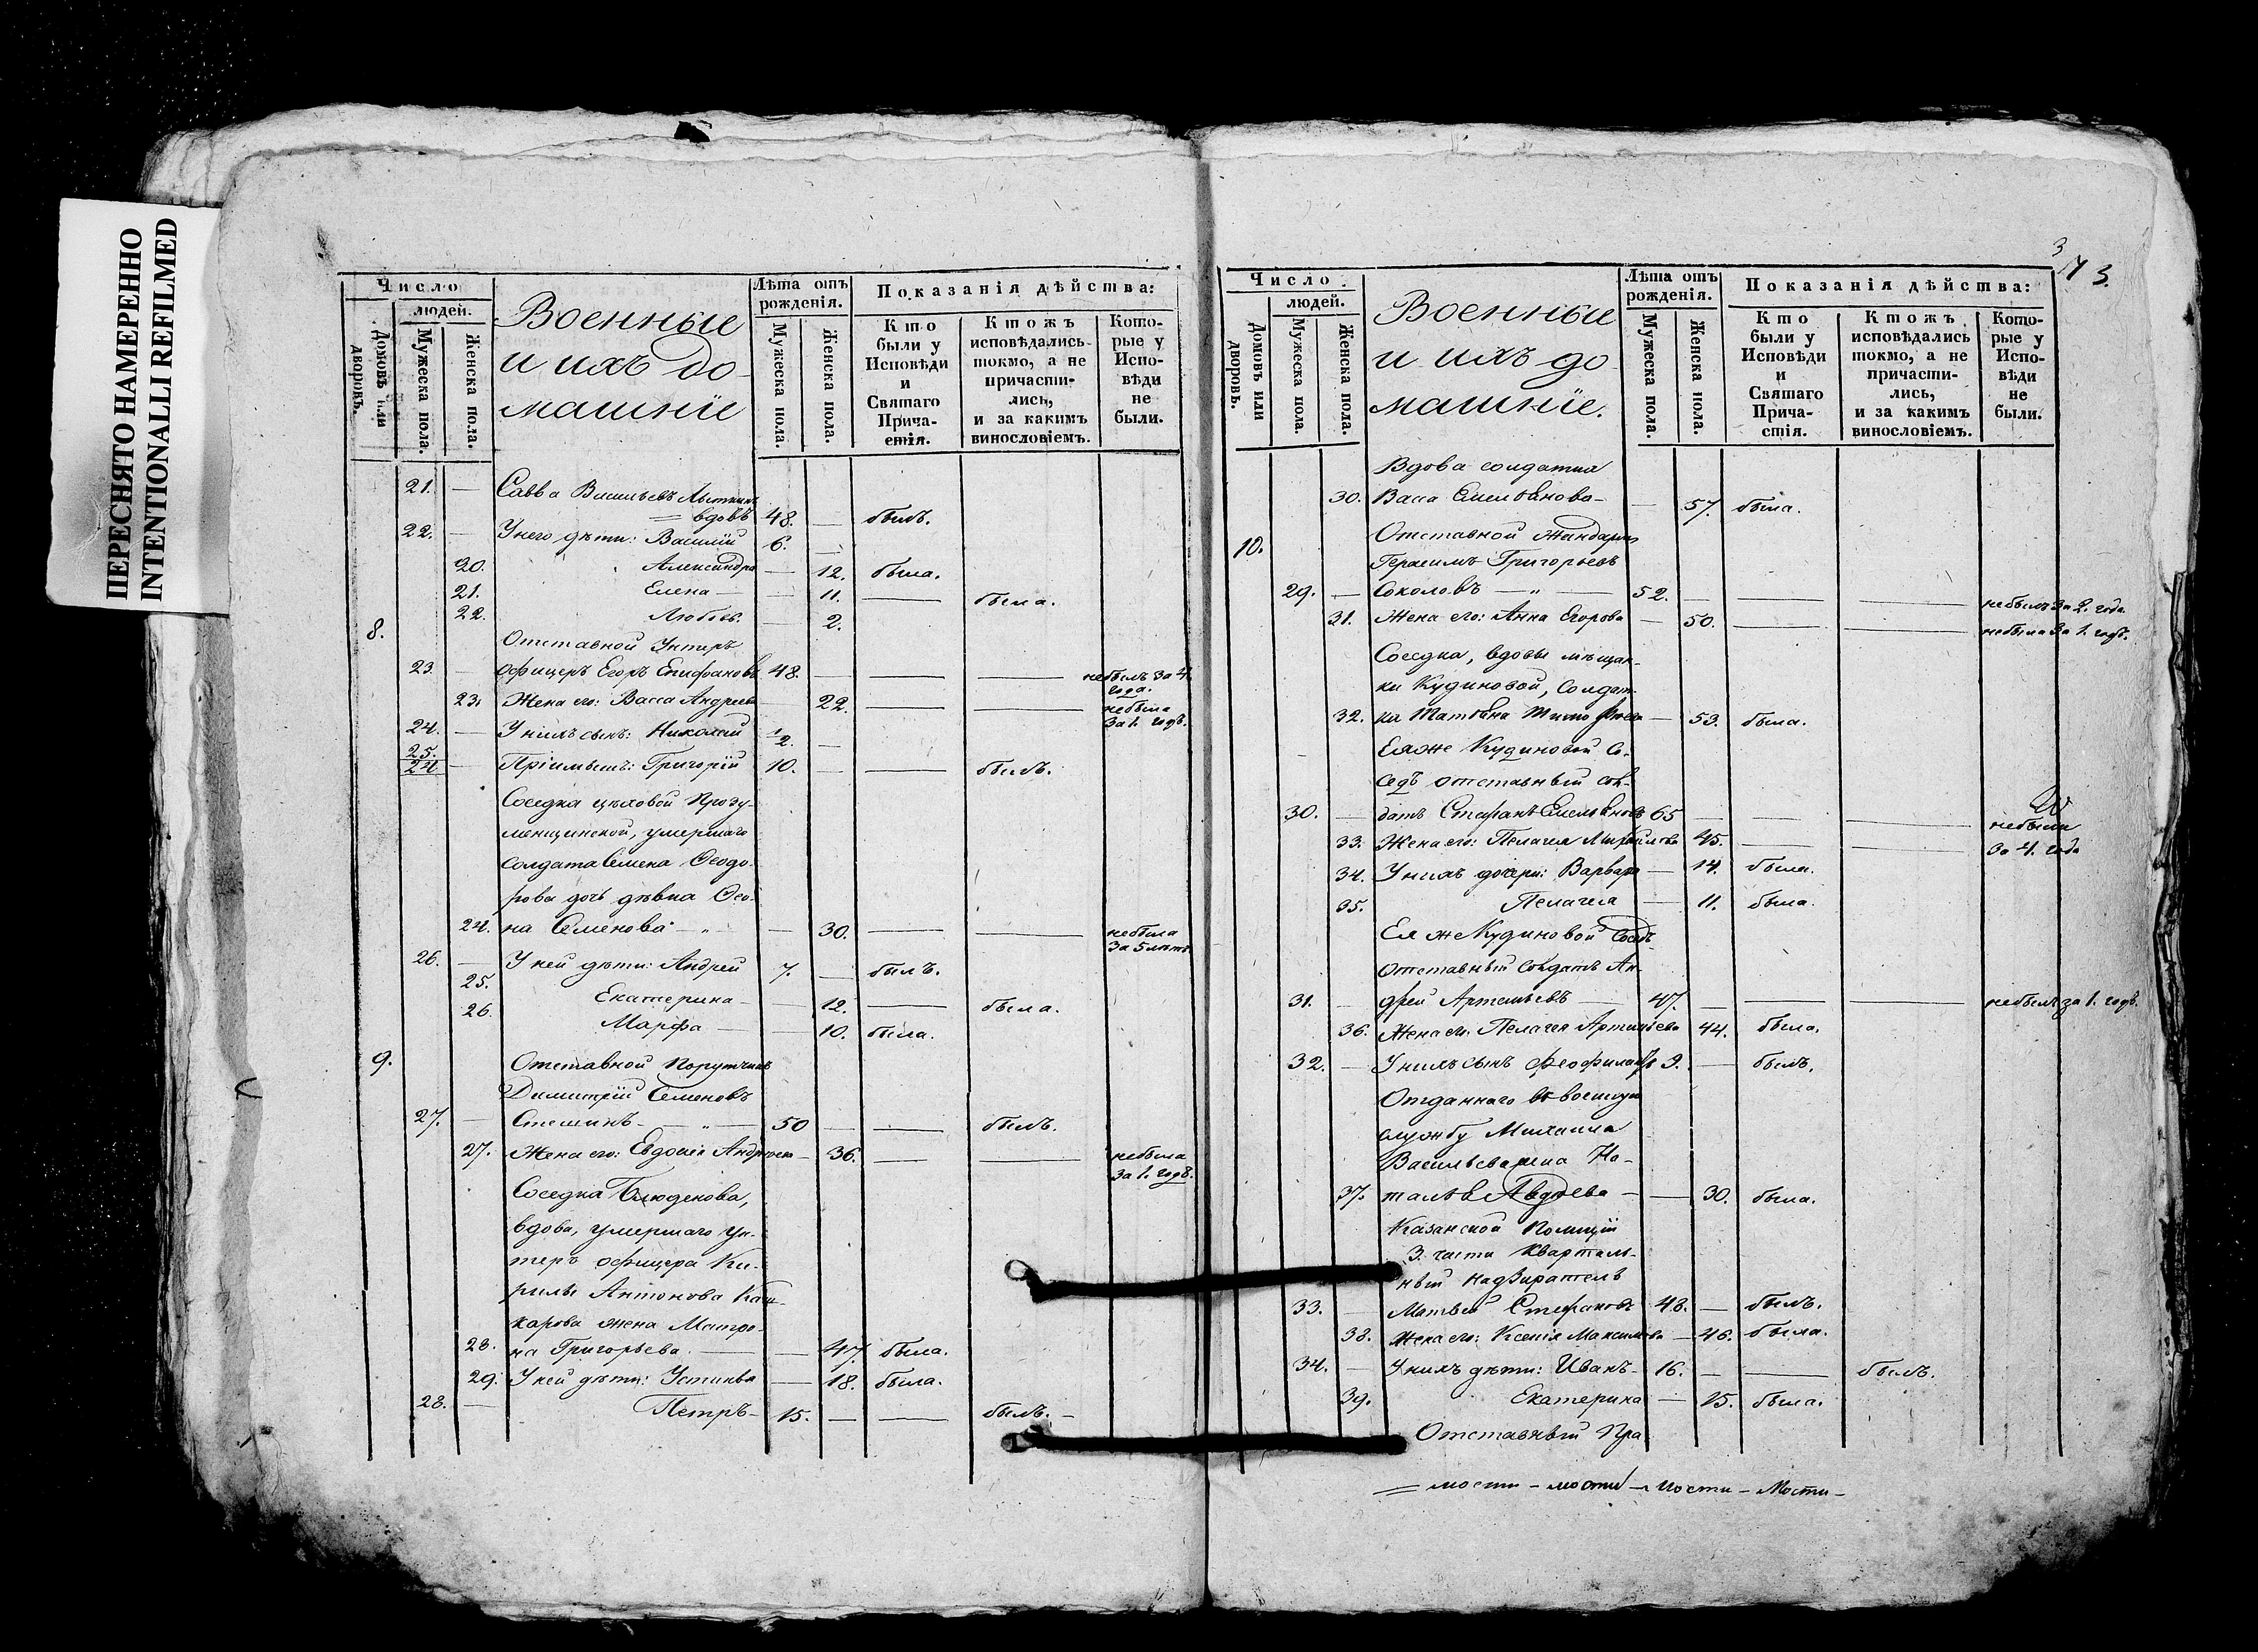 ПЕРЕСНЯТО НАМЕРЕННО
INTENTIONALLI REFILMED
Число
людей.
Домовъ или дворовъ.
Мужеска пола.
Женска пола.
Военные
и ихъ до-
машніе
Лѣта отъ
рожденія.
Мужеска пола.
Женска пола.
Показанія дѣйства:
Кто
были у
Исповѣди
и
Святаго
Прича-
стія.
Ктожъ
исповѣдались
токмо, а не
причасти-
лись,
и за какимъ
винословіемъ.
Кото-
рые у
Испо-
вѣди
не
были.
21. — Савва Васильевъ
вдовъ 48. — былъ.
22. — У него дѣти: Василій 6. —
20. Александра — 12. была.
21. Елена — 11. — была.
22. Любовь. — 2.
8. Отставной Унтеръ
23 — офицеръ Егоръ Епифановъ 48. — — — небылъ за 4.
года.
23. Жена его: Васса Андреева 22. — — небыла
за 1. годъ.
24. — У нихъ сынъ: Николай 1/2. —
25.
24 — Пріимышъ: Григорій 10. — — былъ.
Соседка цѣховой Прозу-
менщинской, умершаго
солдата Семена Ѳеодо-
рова дочь дѣвка Ѳео-
24. на Семенова — 30. — — небыла
за 5 летъ
26. — У ней дѣти: Андрей 7. — былъ.
25. Екатерина — 12. — была.
26. Марѳа — — 10. была.
9. Отставной Порутчикъ
Димитрій Семеновъ
27. — Стешинъ — „ — 50 — — былъ.
27. Жена его: Евдокія Андреева — 36. — — небыла
за 1. годъ.
Соседка
вдова, умершаго ун-
теръ офицера Ки-
рилы Антонова Каш-
карова жена Матро-
28. на Григорьева. — — 47. была.
29. У ней дѣти: Устинья — 18. была.
28. — Петръ — 15. — — былъ. —
3
3.
Число
людей.
Домовъ или дворовъ.
Мужеска пола.
Женска пола.
Военные
и ихъ до-
машніе.
Лѣта отъ
рожденія.
Мужеска пола.
Женска пола.
Показанія дѣйства:
Кто
были у
Исповѣди
и
Святаго
Прича-
стія.
Ктожъ
исповѣдались
токмо, а не
причасти-
лись,
и за какимъ
винословіемъ.
Кото-
рые у
Испо-
вѣди
не
были.
Вдова солдатка
30. Васса Емельянова — — 57. была.
10. Отставной Жандармъ
Герасимъ Григорьевъ
29. — Соколовъ — „ — 52. — — — небылъ за 2. года.
31. Жена его: Анна Егорова — 50. — — небыла за 1. годъ.
Соседка, вдовы мѣщан-
ки Кудиновой, Солдат-
32. ка Татьяна — 53. была.
Еяже Кудиновой Со-
седъ отставный сол-
30. — датъ Стефанъ Емельяновъ 65 — — — небыли
33. Жена его: Пелагея 45. — — за 4. года
34. У нихъ дочери: Варвара — 14. была.
35. Пелагея — 11. была.
Ея же Кудиновой Соседъ
отставный Солдатъ Ан-
31. — дрей Артемьевъ — 47. — — — небылъ за 1. годъ.
36. Жена его: Пелагея 44. была.
32. — У нихъ сынъ Ѳеофилактъ 9. — былъ.
Отданнаго въ военную
службу Михаила
Васильева жена На-
37. талья Авдѣева — — 30. была.
Казанской Полиціи
3. части Кварталь-
ный надзиратель
33. — Матвей Стефановъ 48. — былъ.
38. Жена его: Ксенія Максимова — 46. была.
34. — У нихъ дѣти: Иванъ — 16. — — былъ.
39. Екатерина — 15. была.
Отставный Пра